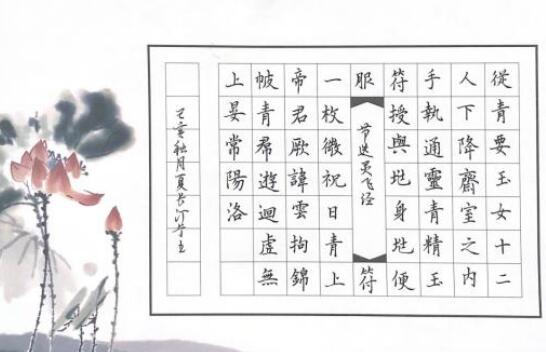 從青要玉女十二
人下降齋室之內
手執通靈青精玉
符授與兆身兆便
服
节选灵飞经
符
一枚微祝曰青上
帝君厥諱雲拘錦
帔青帬遊迴虛無
上晏常陽洛
己亥秋月夏长